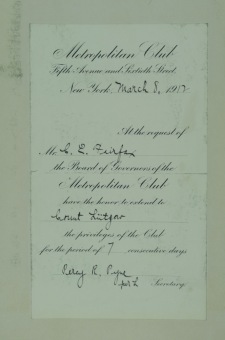 Metropolitan Club
Fifth Avenue and Sixtieth Street.
New York, March 8, 191
At the request of
Mr. C. L. Fairfax
the Board of Governors of the
Metropolitan Club
have the honor to extend to
Count Lützow
the privileges of the Club
for the period of 7 consecutive days
Percy R. Pyne
Secretary.